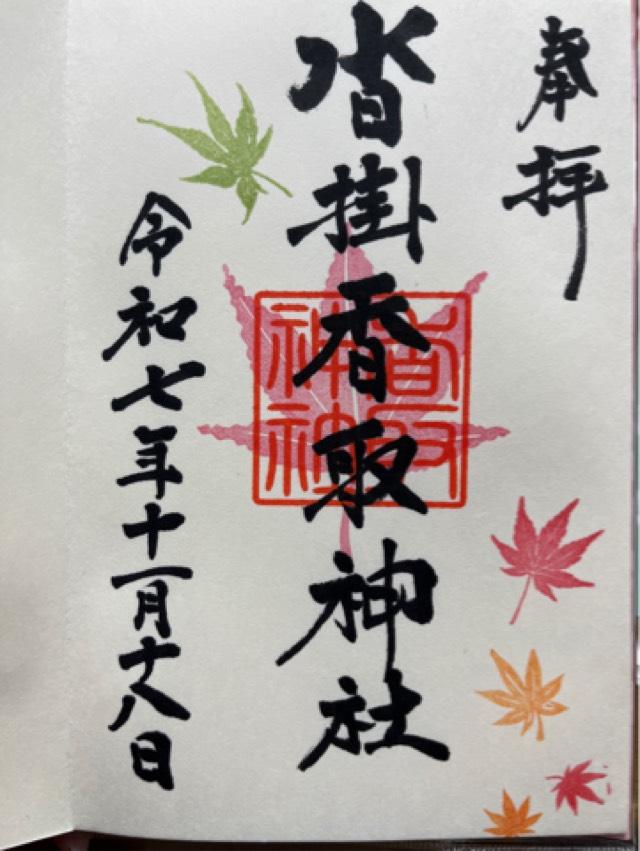 奉拝
沓掛香取神社
香取神社
令和七年十一月十八日